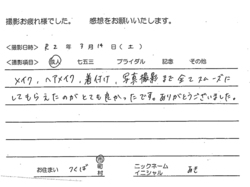 撮影お疲れ様でした。 感想をお願いいたします。
＜撮影日時＞ R2 年 9月 19日 (土)
＜撮影項目＞ 成人 七五三 ブライダル 記念 その他
メイク、ヘアメイク、着付け、写真撮影まで全てスムーズに
してもらえたのがとても良かったです。ありがとうございました。
お住まい つくば 市 町 村 ニックネーム イニシャル あき